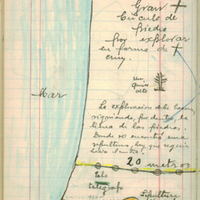 Gran
Círculo de
piedra
por explorar
en forma de
cruz.
Un
quis
co
Mar
La exploración debe hacer
siguiendo, por dentro, la
línea de las piedras.
Donde se encuentra una
sepultura, hay que seguir
hacia dentro.
20 metros
telé
telégrafo
Sepultura